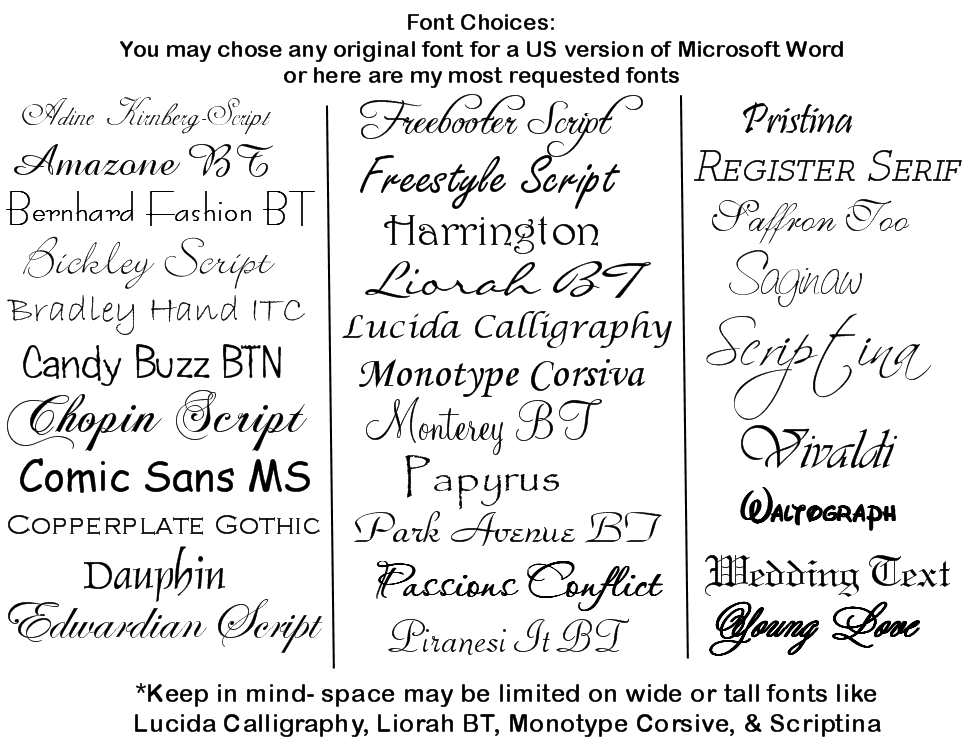 Font Choices:
You may chose any original font for a US version of Microsoft Word
or here are my most requested fonts
Adine Kirnberg-Script
Amazone BT
Bernhard Fashion BT
Bickley Script
Bradley Hand ITC
Candy Buzz BTN
Chopin Script
Comic Sans MS
Copperplate Gothic
Dauphin
Edwardian Script
Freebooter Script
Freestyle Script
Harrington
Liorah BT
Lucida Calligraphy
Monotype Corsiva
Monterey BT
Papyrus
Park Avenue BT
Passions Conflict
Piranesi It BT
Pristina
Register Serif
Saffron Too
Saginaw
Scriptina
Vivaldi
Waltograph
Wedding Text
Young Love
*Keep in mind- space may be limited on wide or tall fonts like
Lucida Calligraphy, Liorah BT, Monotype Corsive, & Scriptina